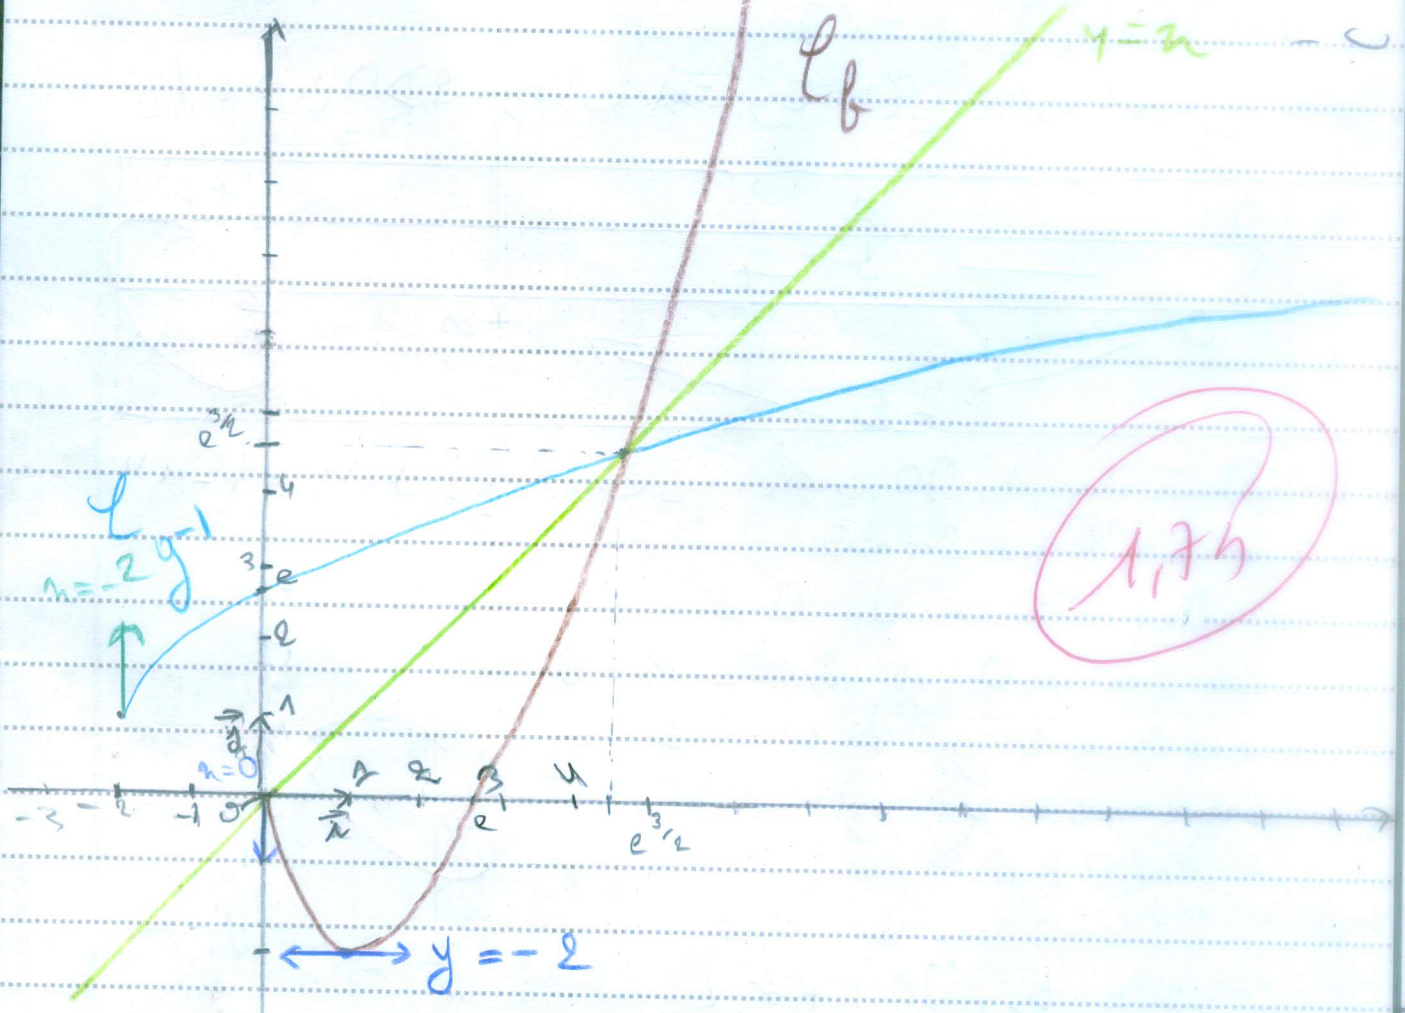 𝒞f
y = x
e^3/2
4
𝒞g-1
3
e
x = -2
2
1
j
x = 0
1 2 3 4
-3 -2 -1 0
i
e
e^3/2
y = -2
1,75